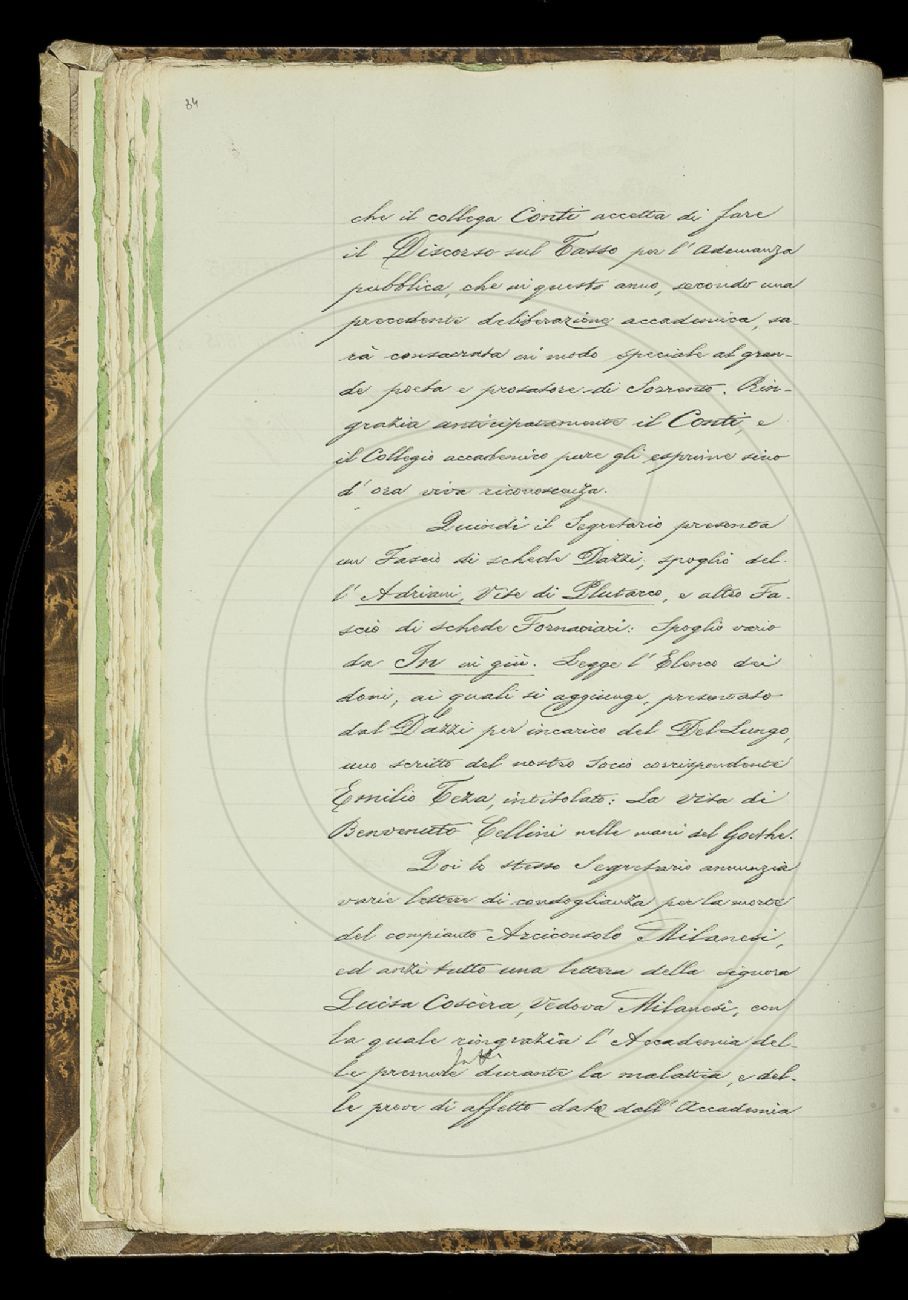 84
che il collega Conti accetta di fare
il Discorso sul Tasso per l'adunanza
pubblica, che in questo anno, secondo una
precedente deliberazione accademica, sa-
rà consacrata in modo speciale al gran-
de poeta e prosatore di Sorrento. Rin-
grazia anticipatamente il Conti, e
il Collegio accademico pure gli esprime sino
d'ora viva riconoscenza.
Quindi il Segretario presenta
un Fascio di schede Dazzi, spoglio del-
l'Adriani, Vite di Plutarco, e altro Fa-
scio di schede Fornaciari: Spoglio vario
da In in giù. Legge l'Elenco dei
doni, ai quali si aggiunge, presentato
dal Dazzi per incarico del Del Lungo,
uno scritto del nostro Socio corrispondente
Emilio Teza, intitolato: La Vita di
Benvenuto Cellini nelle mani del Goethe.
Poi lo stesso Segretario annunzia
varie lettere di condoglianza per la morte
del compianto Arciconsolo Milanesi,
ed anzi tutto una lettera della signora
Luisa Coscèra, Vedova Milanesi, con
la quale ringrazia l'Accademia del-
le premure durante la malattia, e del-
le prove di affetto date dall'Accademia